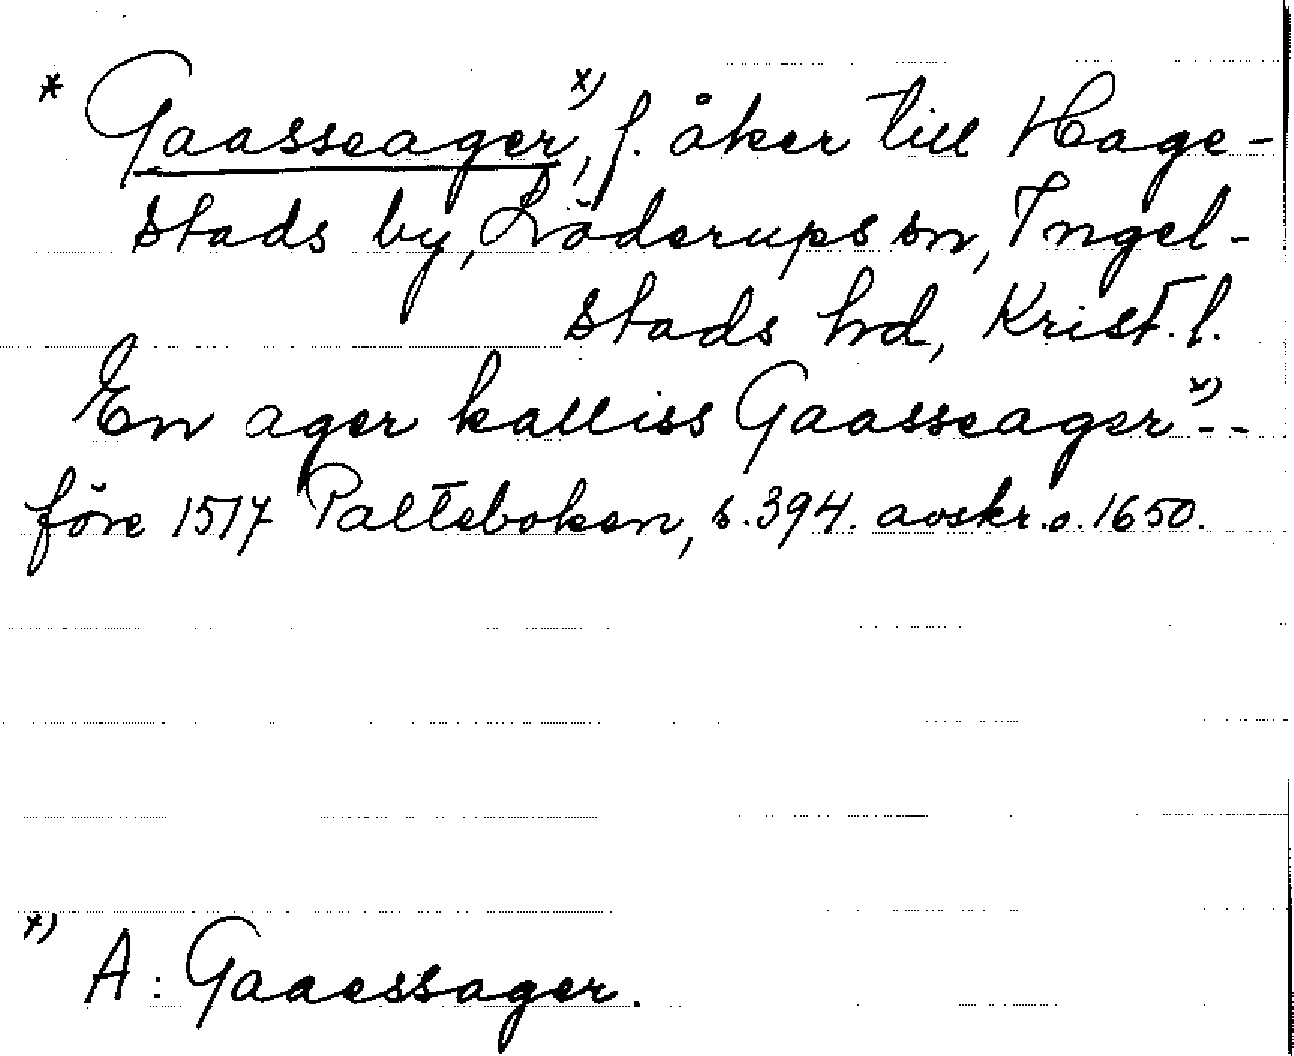 * Gaasseager x), f. åker till Hage-
stads by, Löderups sn, Ingel-
stads hd, Krist. l.
En ager kalliss Gaasseager x) - -
före 1517 Palteboken, s. 394. avskr. o. 1650.
x) A: Gaaessager.